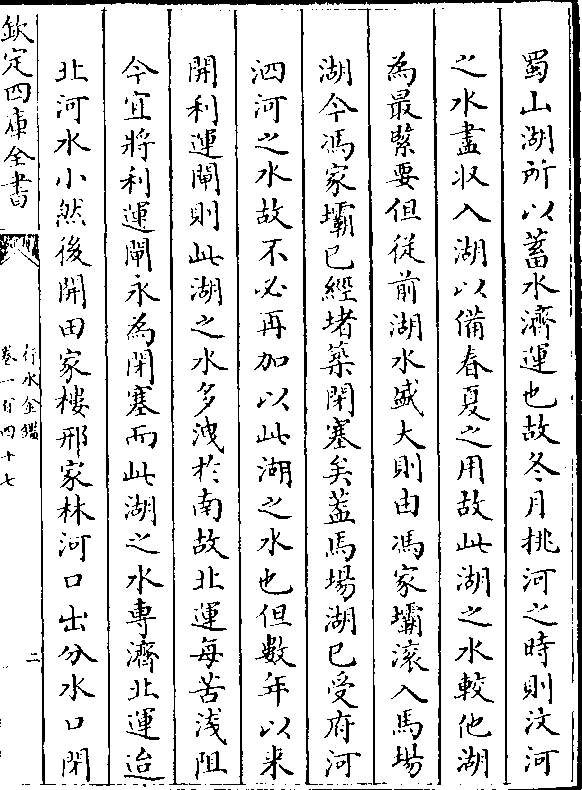 蜀山湖所以蓄水濟運也故冬月挑河之時則汶河
之水盡收入湖以備春夏之用故此湖之水較他湖
為最緊要但從前湖水盛大則由馮家壩滚入馬場
湖今馮家壩已經堵築閉塞矣蓋馬場湖已受府河
泗河之水故不必再加以此湖之水也但數年以来
開利運閘則此湖之水多洩於南故北運每苦淺阻
今宜將利運閘永為閉塞而此湖之水專濟北運迨
北河水小然後開田家樓邢家林河口出分水口閉
欽定四庫全書
行水金鑑
卷一百四十七
二